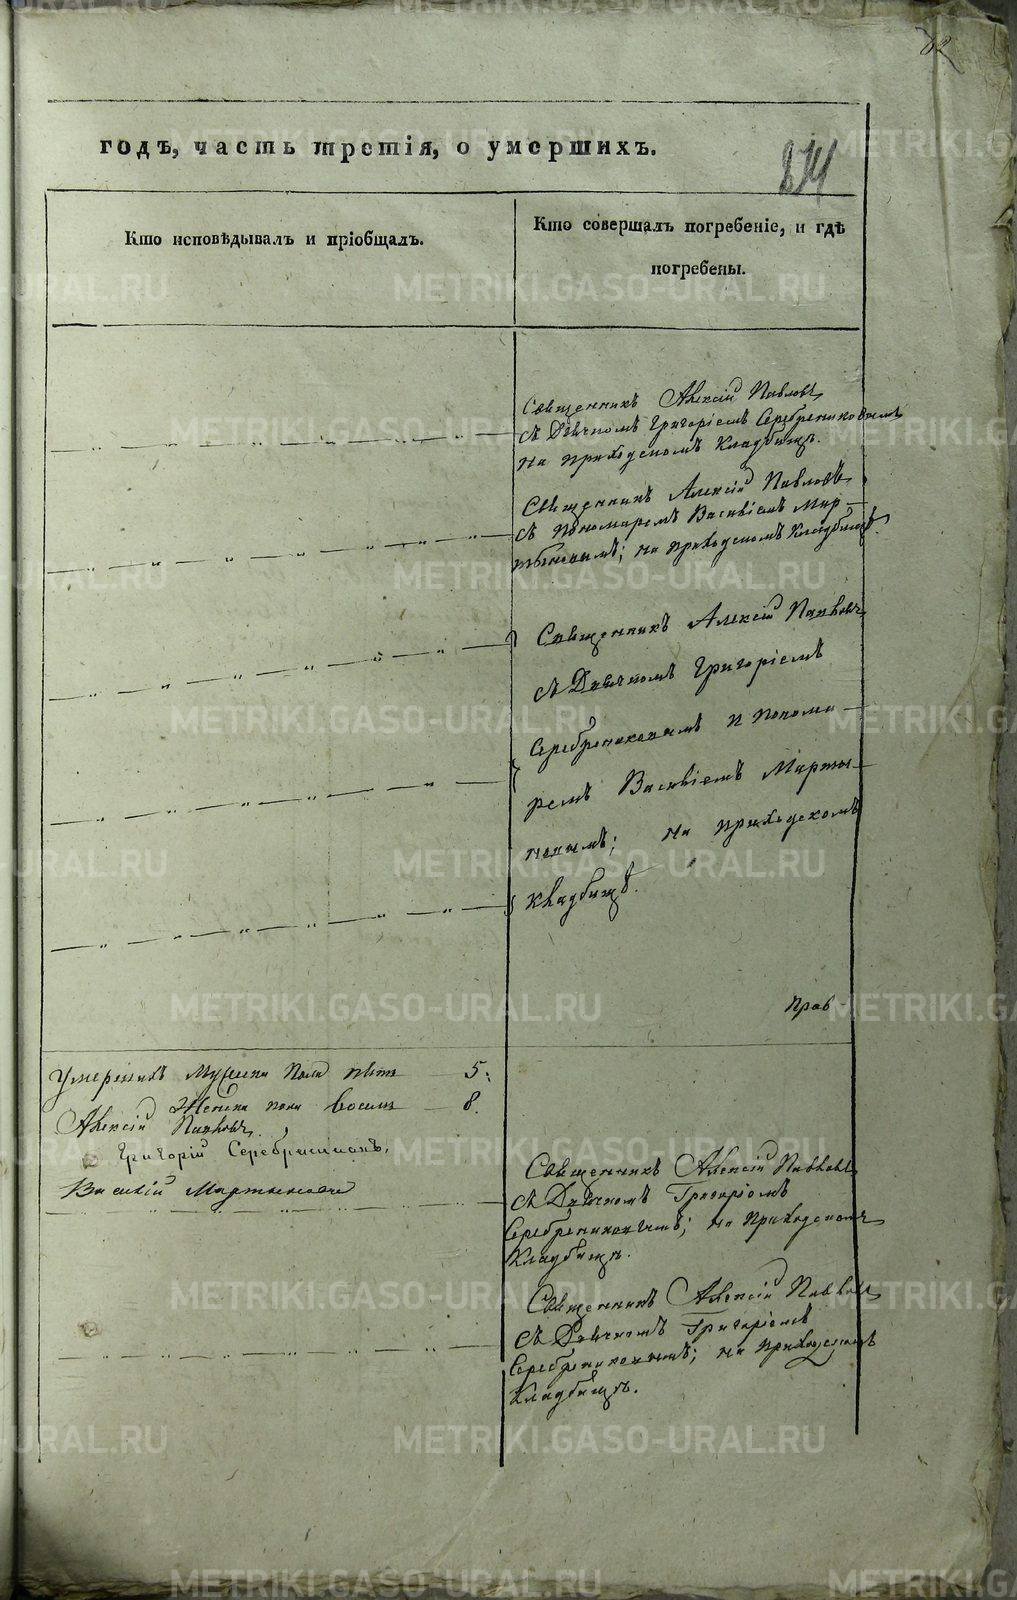 годъ, часть третія, о умершихъ.
Кто исповѣдывалъ и пріобщалъ.
Кто совершалъ погребеніе, и гдѣ
погребены.
Священникъ Алексій Павловъ
съ Дьячкомъ Григоріемъ Серебрениковымъ
на приходскомъ кладбищѣ.
Священникъ Алексій Павловъ
съ пономаремъ Василіемъ Мар-
тыновымъ; на приходскомъ кладбищѣ.
Священникъ Алексій Павловъ
съ Дьячкомъ Григоріемъ
Серебрениковымъ и понома-
ремъ Василіемъ Марты-
новымъ; на приходскомъ
кладбищѣ.
Прав-
Умершихъ мужеска пола пять 5.
Женска пола восемь 8.
Алексій Павловъ.
Григорій Серебрениковъ.
Василій Мартыновъ
Священникъ Алексій Павловъ
съ Дьячкомъ Григоріемъ
Серебрениковымъ; на приходскомъ
кладбищѣ.
Священникъ Алексій Павловъ
съ Дьячкомъ Григоріемъ
Серебрениковымъ; на приходскомъ
кладбищѣ.
METRIKI.GASO-URAL.RU